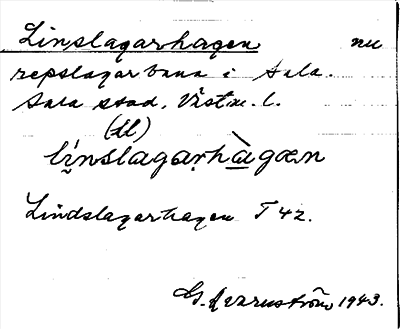 Linslagarhagen nu
repslagarbana i Sala.
Sala stad, Västm. l.
(ll)
lí̯nslagaṛhàgæn
Lindslagarhagen T 42.
G. Qvarnström 1943.